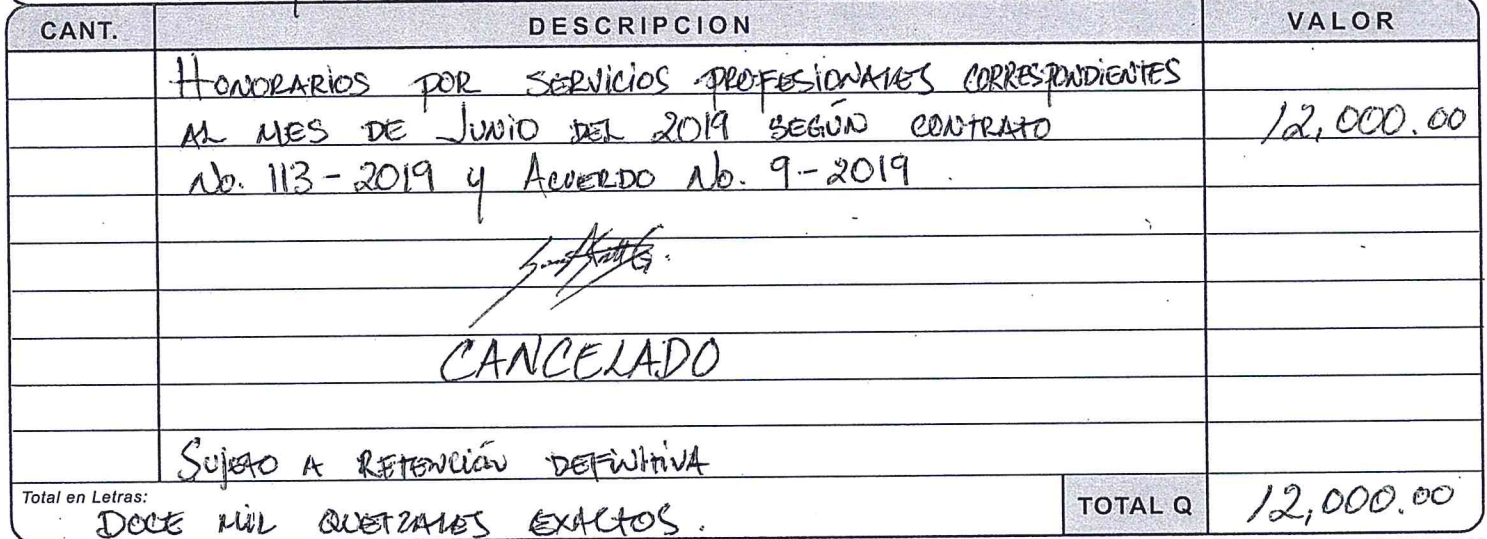 CANT. DESCRIPCION VALOR
HONORARIOS POR SERVICIOS PROFESIONALES CORRESPONDIENTES
AL MES DE JUNIO DEL 2019 SEGÚN CONTRATO 12,000.00
No. 113-2019 y ACUERDO No. 9-2019.
CANCELADO
SUJETO A RETENCIÓN DEFINITIVA
Total en Letras: TOTAL Q 12,000.00
DOCE MIL QUETZALES EXACTOS.